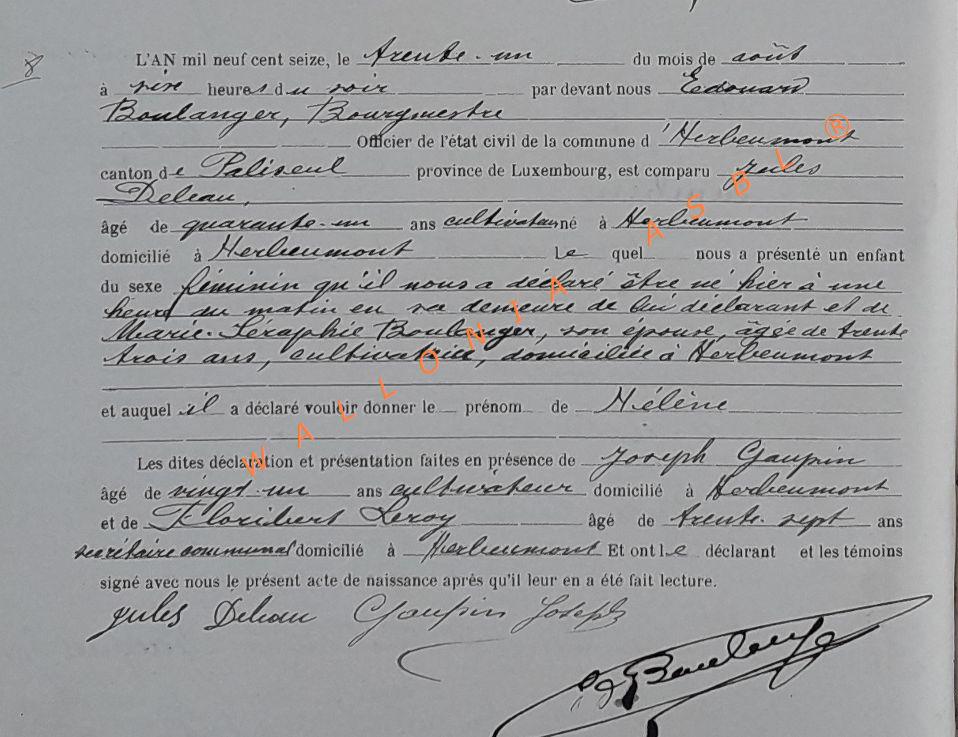 8
L'AN mil neuf cent seize, le trente-un du mois de août
à six heures du soir par devant nous Edouard
Boulanger, Bourgmestre
Officier de l'état civil de la commune d'Herbeumont
canton de Paliseul province de Luxembourg, est comparu Jules
Deleau,
âgé de quarante-un ans cultivateur né à Herbeumont
domicilié à Herbeumont Le quel nous a présenté un enfant
du sexe féminin qu'il nous a déclaré être né hier à une
heure du matin en sa demeure de lui déclarant et de
Marie-Séraphie Boulanger, son épouse, âgée de trente
trois ans, cultivatrice, domiciliée à Herbeumont
et auquel il a déclaré vouloir donner le prénom de Hélène
Les dites déclaration et présentation faites en présence de Joseph Gaupin
âgé de vingt-un ans cultivateur domicilié à Herbeumont
et de Floribert Leroy âgé de trente-sept ans
secrétaire communal domicilié à Herbeumont Et ont le déclarant et les témoins
signé avec nous le présent acte de naissance après qu'il leur en a été fait lecture.
Jules Deleau Gaupin Joseph
E. Boulanger
WALLONIA ASBL ®